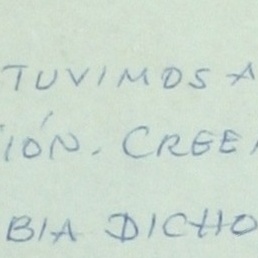 TUVIMOS A
IÓN. CREE
BIA DICHO